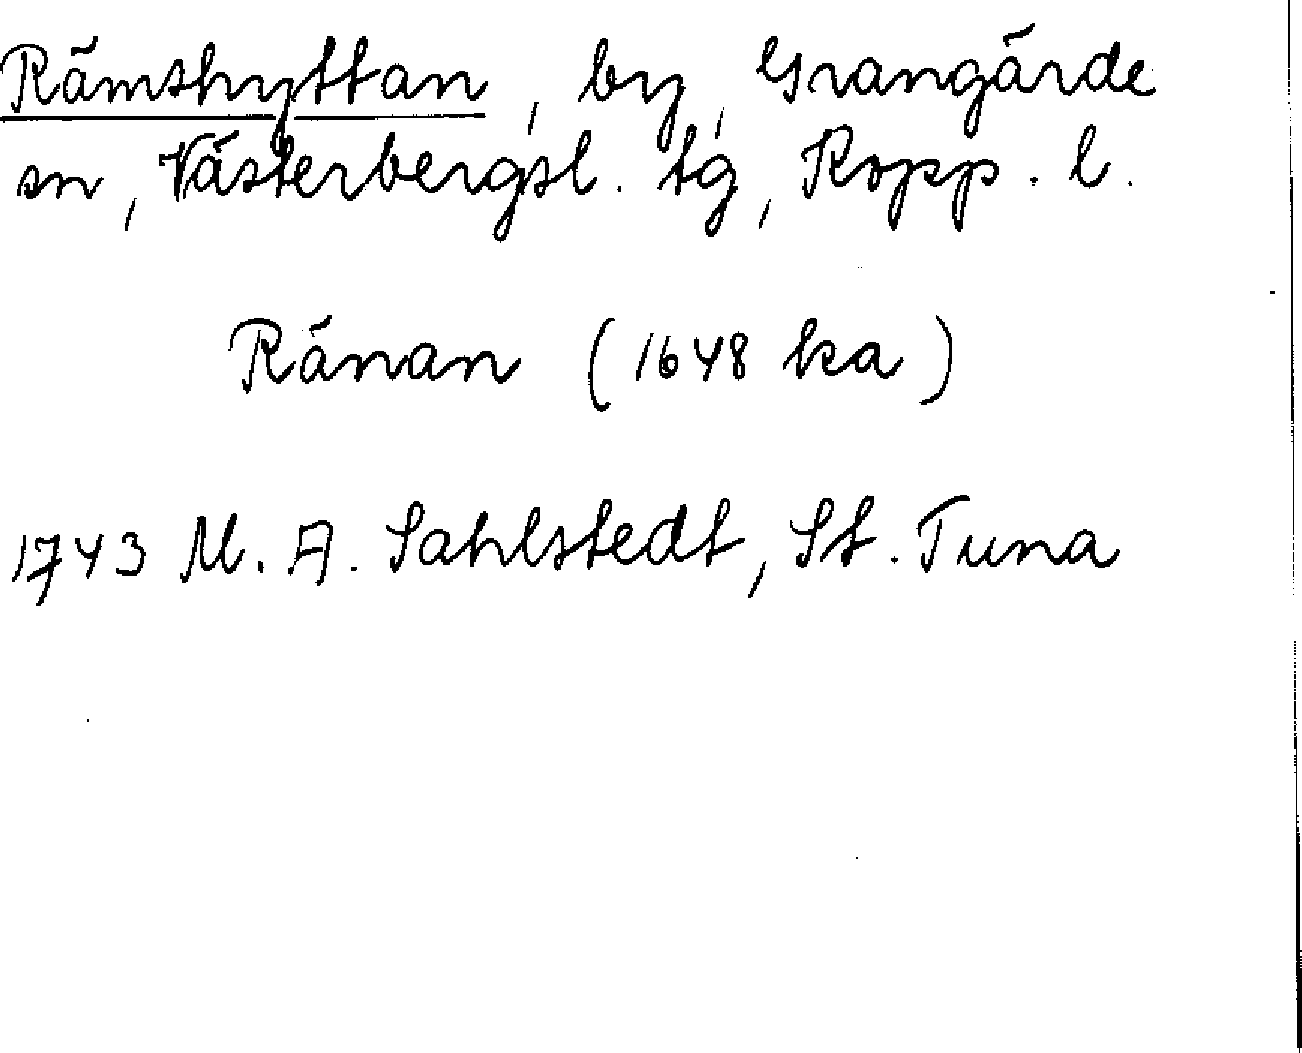 Rämshyttan, by, Grangärde
sn, Västerbergsl. tg, Kopp. l.
Ränan (1648 ka)
1743 M. A. Sahlstedt, St. Tuna